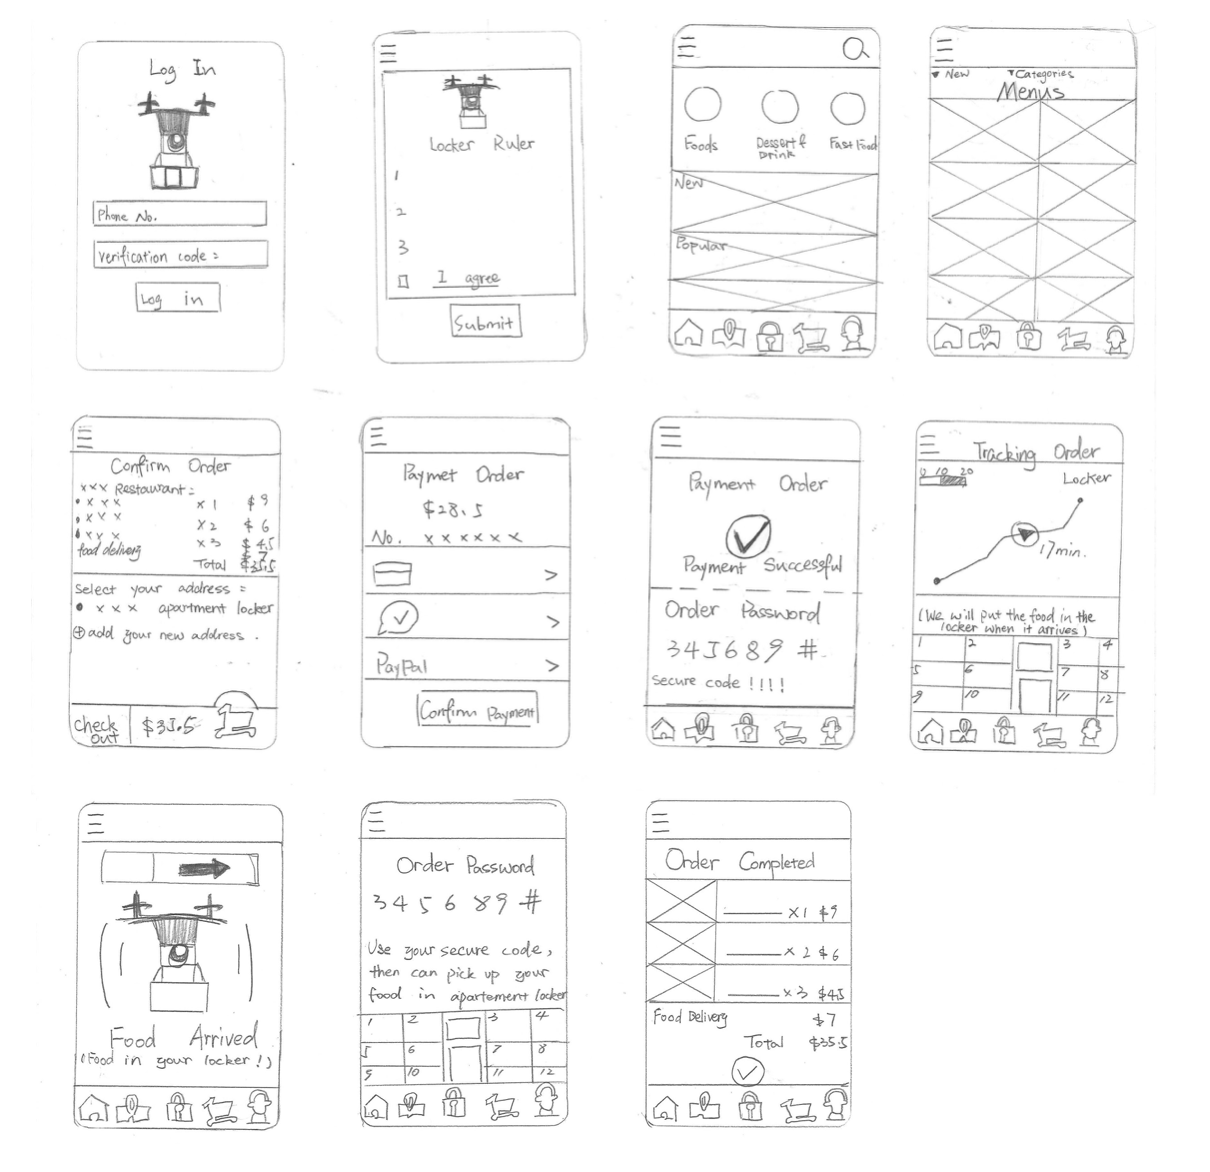 Log In
Phone No.
Verification code :
Log in
Locker Ruler
1
2
3
I agree
Submit
Foods
Dessert & Drink
Fast Food
New
Popular
▼ New ▼ Categories
Menus
Confirm Order
x x x Restaurant :
• x x x x 1 $ 9
• x x x x 2 $ 6
• x x x x 3 $ 4.5
food delivery $ 7
Total $35.5
Select your address :
• x x x apartment locker
⊕ add your new address .
Check out $35.5
Paymet Order
$28.5
No. x x x x x x
>
>
PayPal >
Confirm Payment
Payment Order
Payment Successful
Order Password
345689 #
Secure code !!!!
Tracking Order
0 10 20
Locker
17min.
(We will put the food in the
locker when it arrives)
1 2 3 4
5 6 7 8
9 10 11 12
Food Arrived
(Food in your locker!)
Order Password
3 4 5 6 8 9 #
Use your secure code,
then can pick up your
food in apartement locker
1 2 3 4
5 6 7 8
9 10 11 12
Order Completed
x1 $9
x 2 $6
x 3 $45
Food Delivery $7
Total $35.5